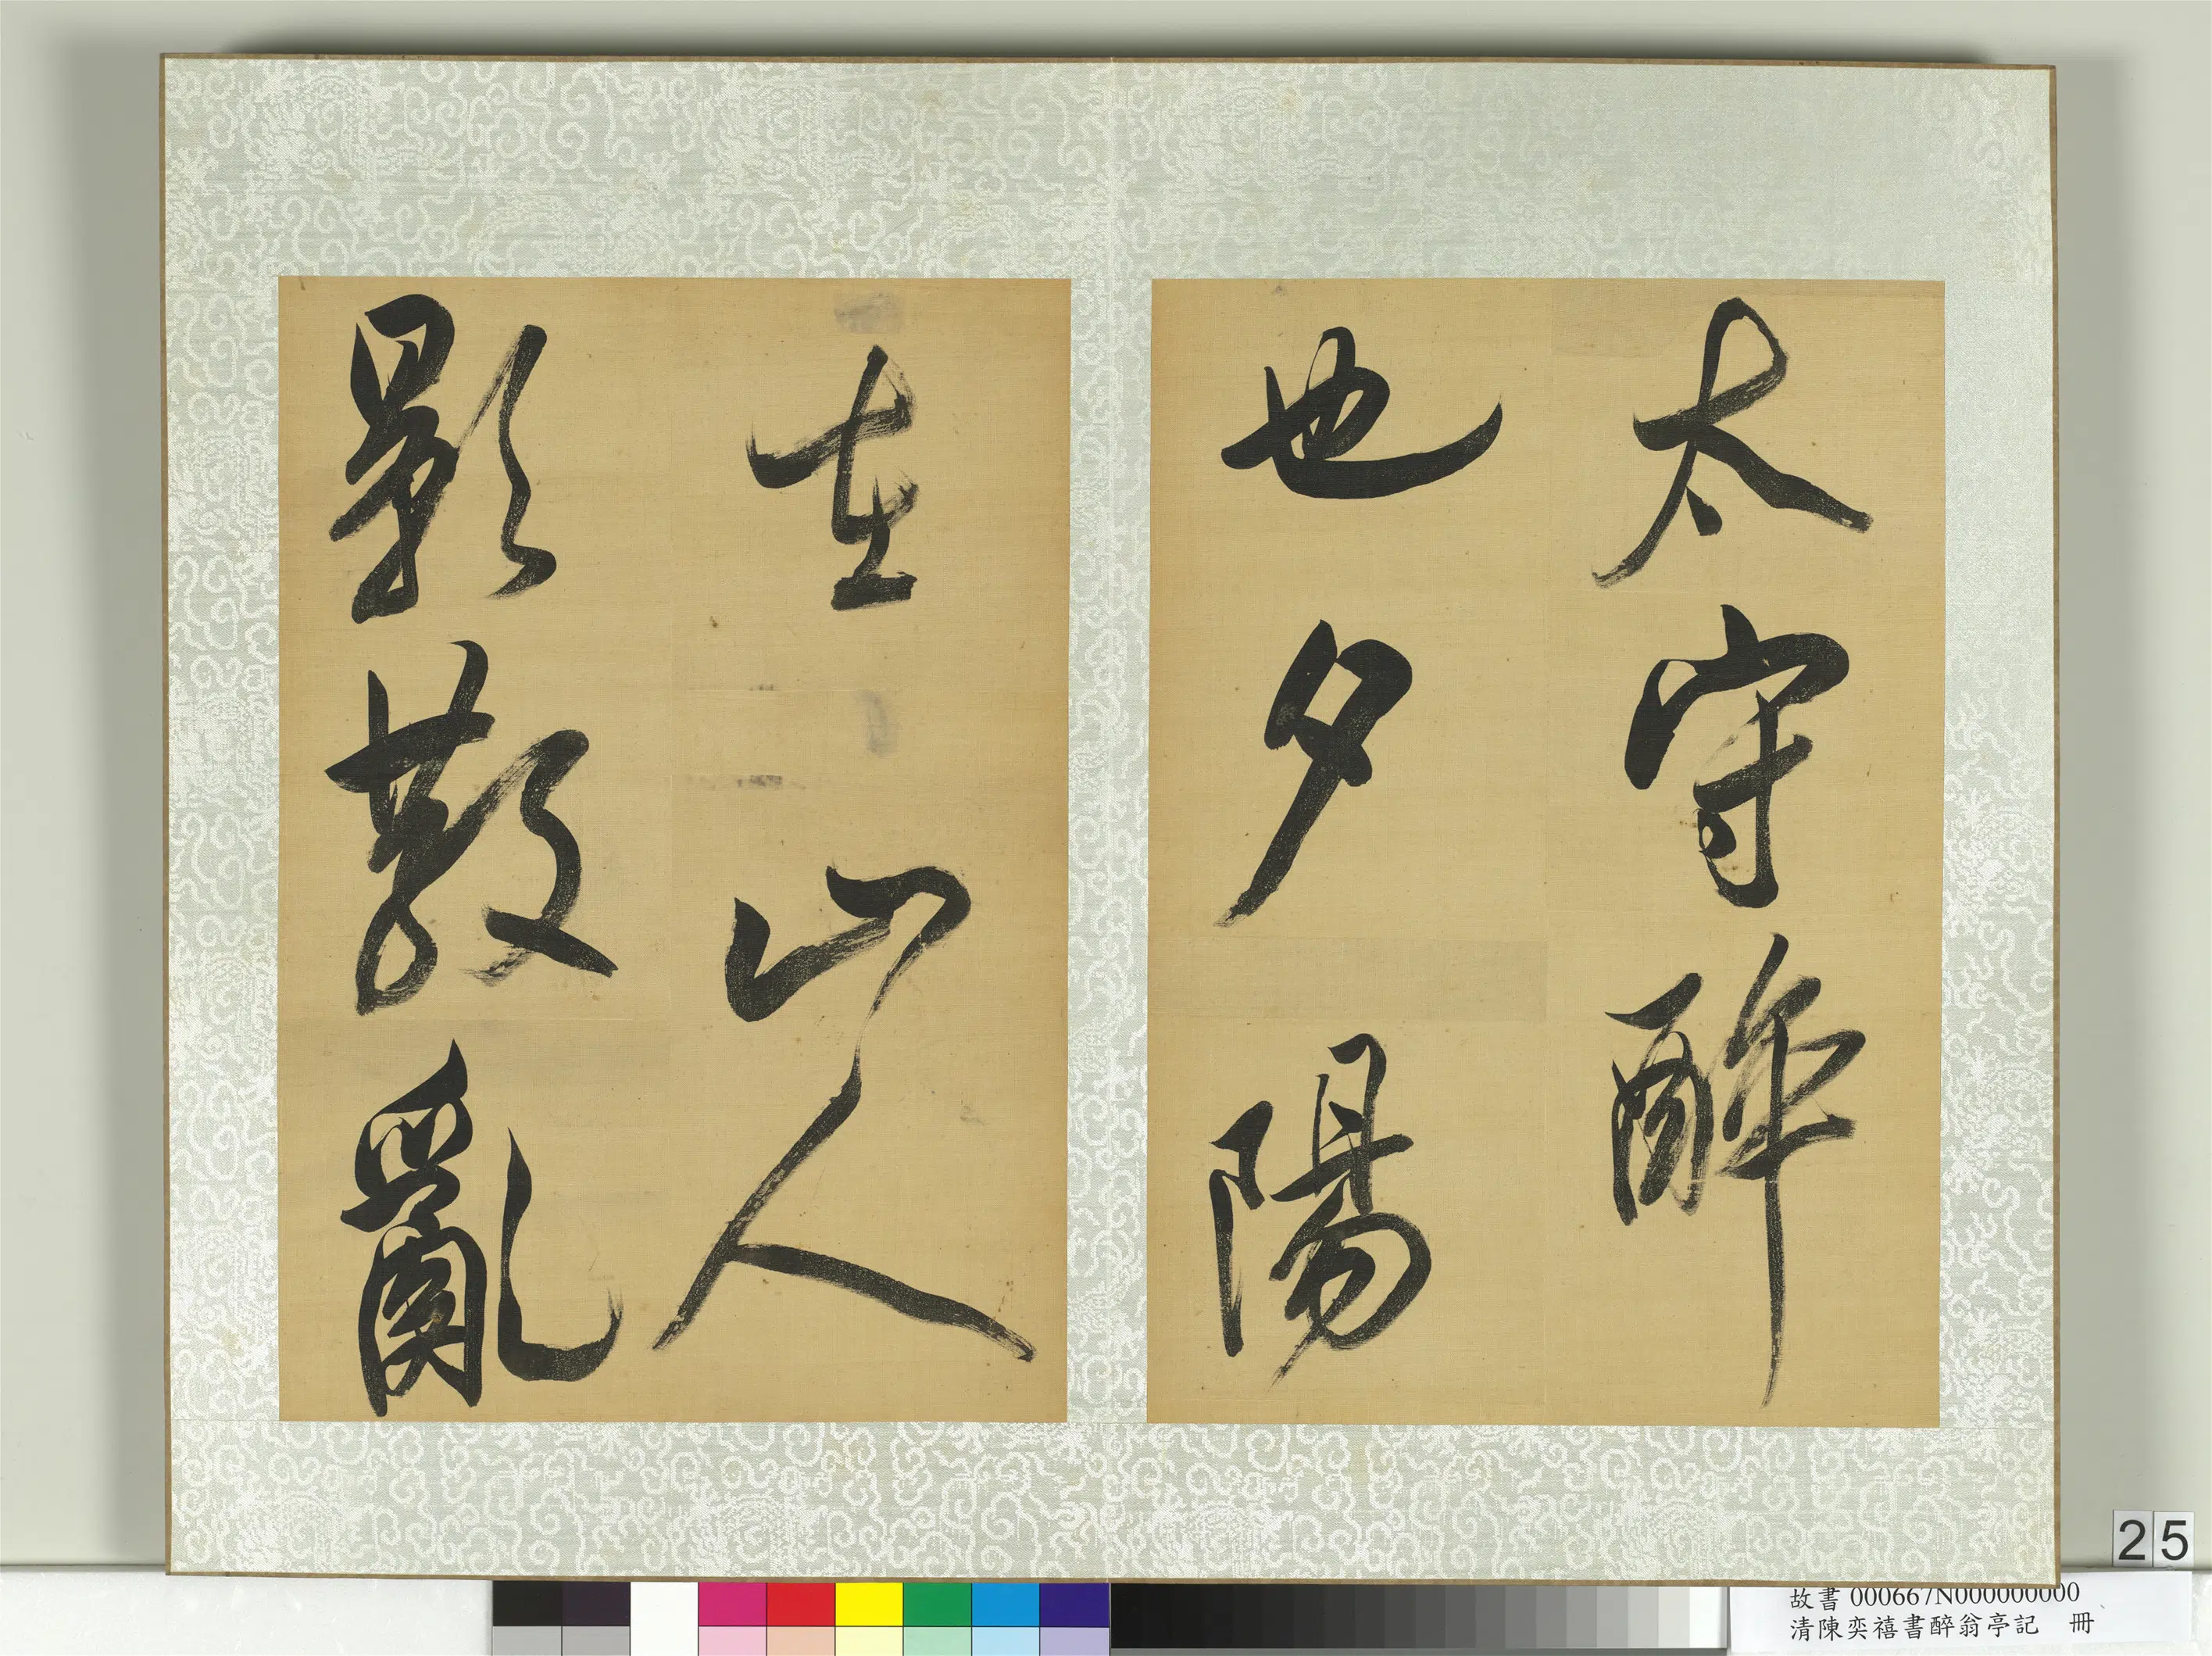 太守醉
也夕陽
在山人
影散亂
25
故書000667N000000000
清陳奕禧書醉翁亭記 冊